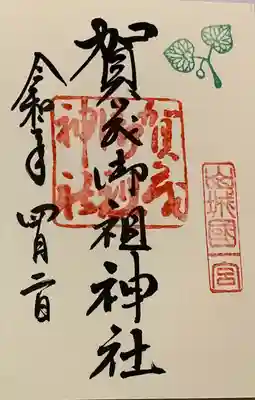 山城國一宮
賀茂御祖神社
賀茂
御祖
神社
令和年 四月二日